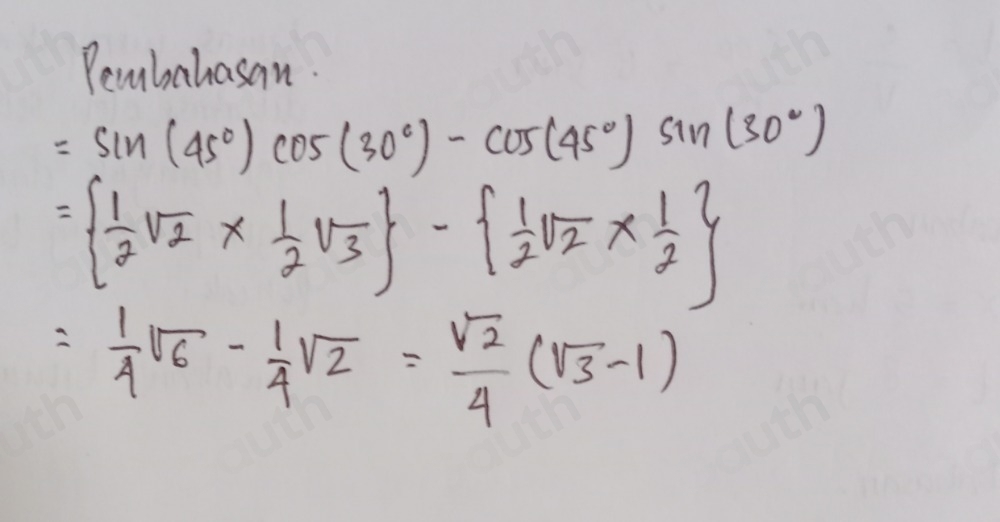 Pembahasan.
= sin (45°) cos (30°) - cos (45°) sin (30°)
= {1/2 √2 × 1/2 √3} - {1/2 √2 × 1/2}
= 1/4 √6 - 1/4 √2 = √2/4 (√3 - 1)